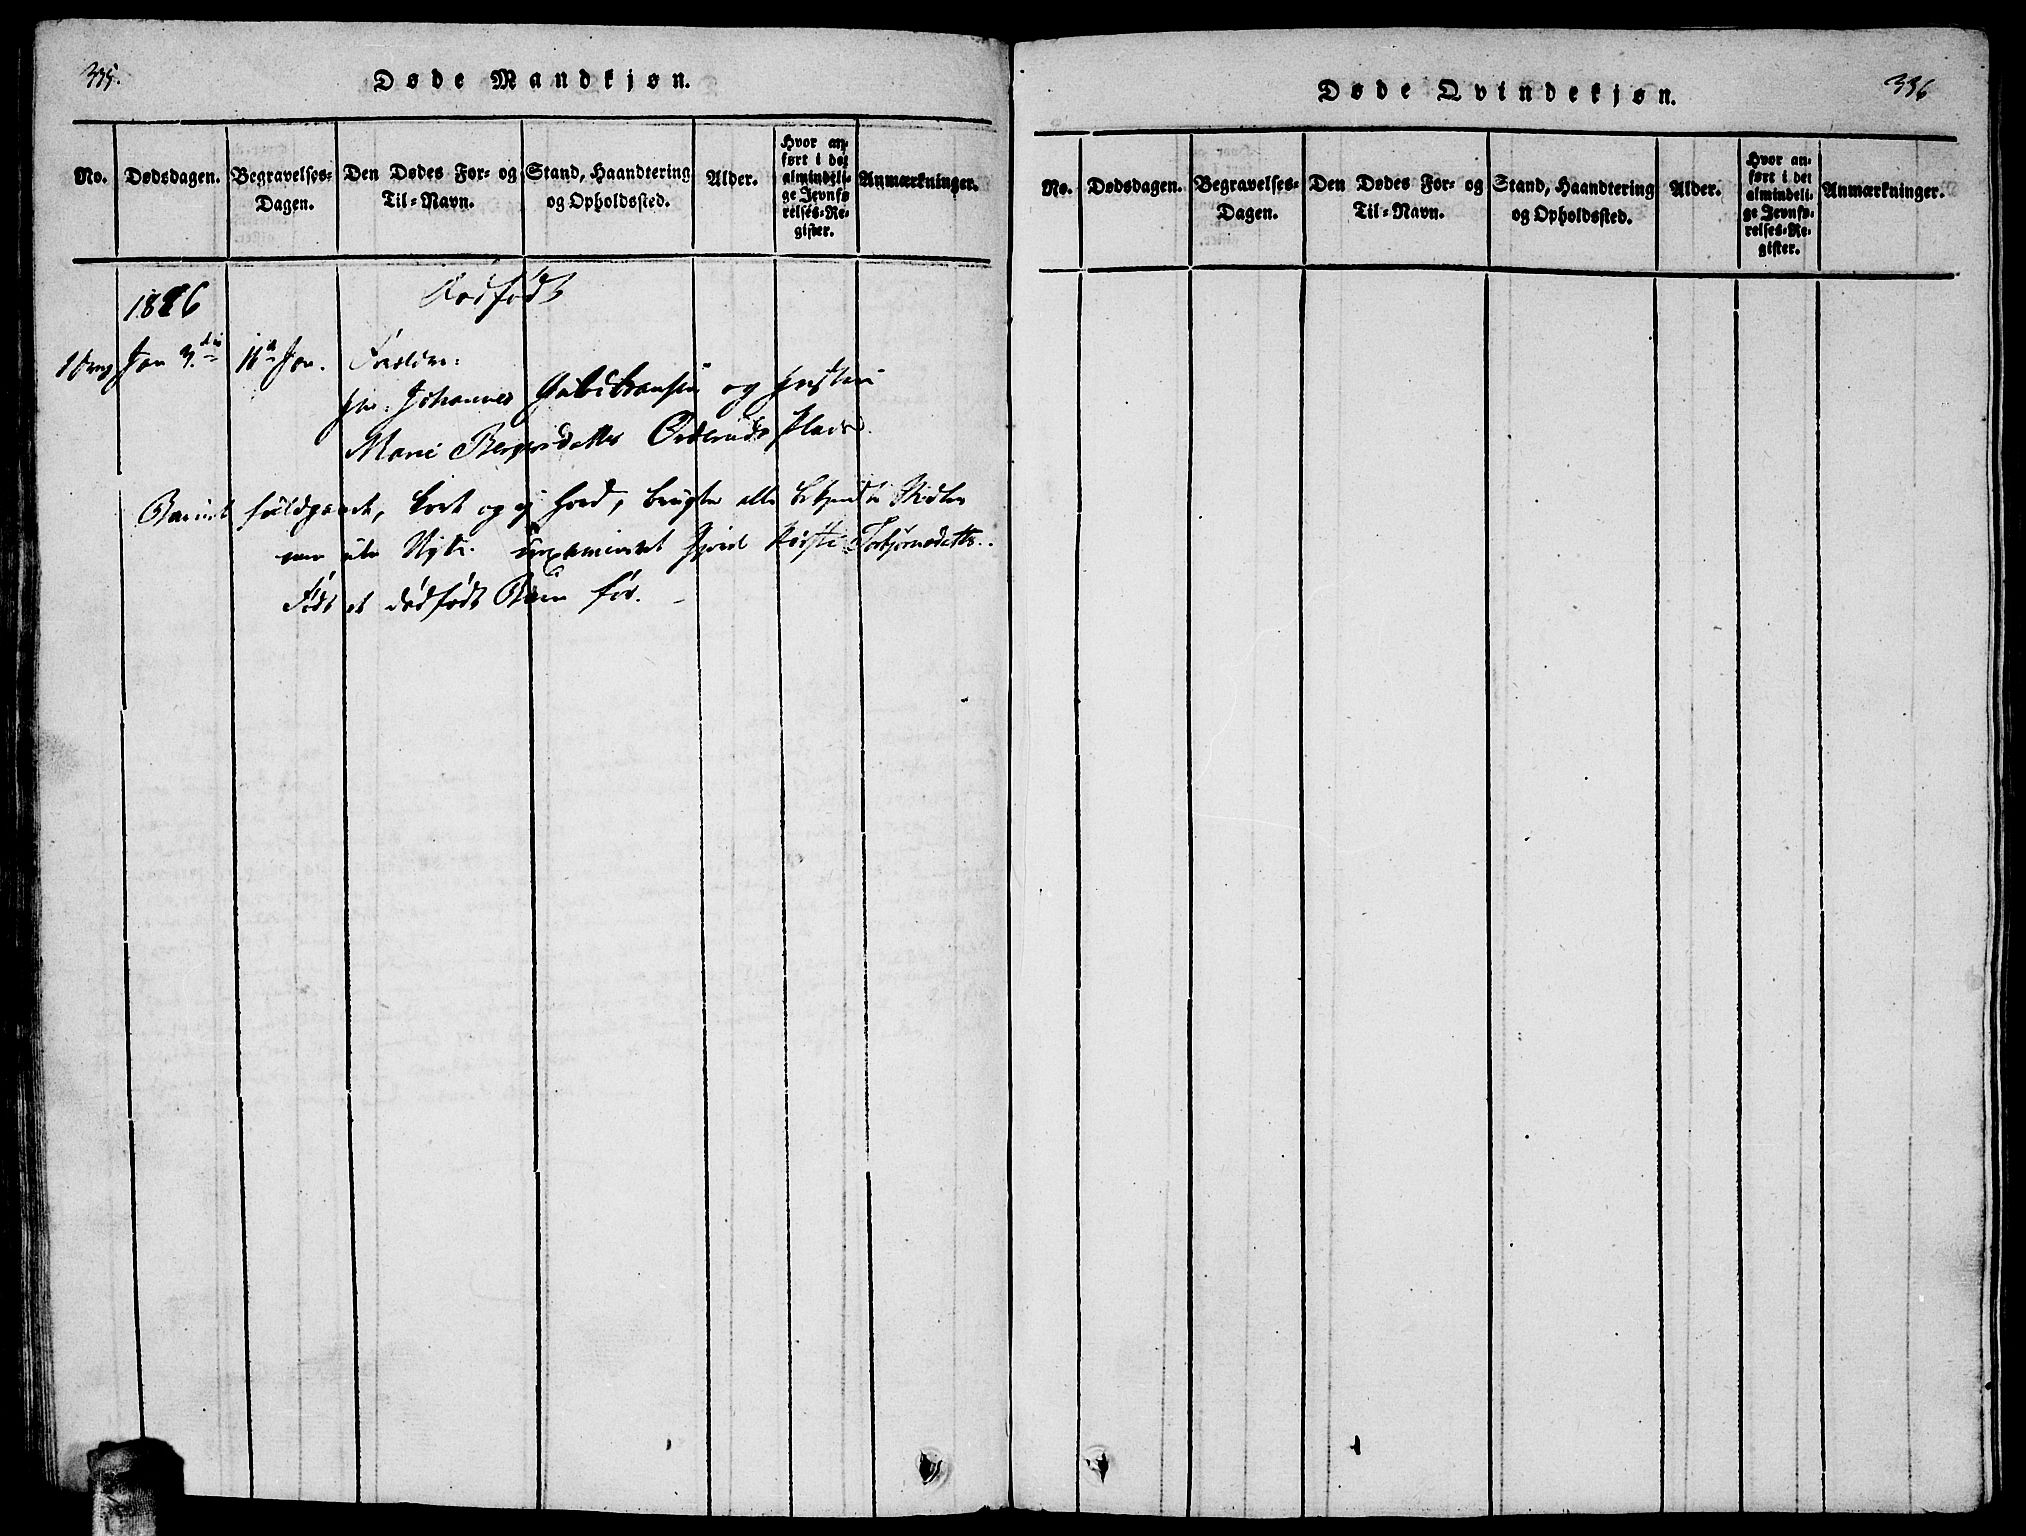 335.
Døde Mandkjøn.
No. Dødsdagen. Begravelses-Dagen. Den Dødes For- og Til-Navn. Stand, Haandtering og Opholdssted. Alder. Hvor anført i det almindelige Jevnførelses-Register. Anmærkninger.
1826 Dødfødt
1 Dreng Jan 3die 16d Jan. Forældre:
Johannes Guldbransen og Hustru
Marie Bergersdatter Ørderuds Plads.
Barnet fuldgaaet, kort og ej haard, brugte alle bekjendte Midler
men uden Nytte. uexamineret Gjord Kirsti Torbjørnsdatter.
Født et dødfødt Barn før.
336
Døde Qvindekjøn.
No. Dødsdagen. Begravelses-Dagen. Den Dødes For- og Til-Navn. Stand, Haandtering og Opholdssted. Alder. Hvor anført i det almindelige Jevnførelses-Register. Anmærkninger.